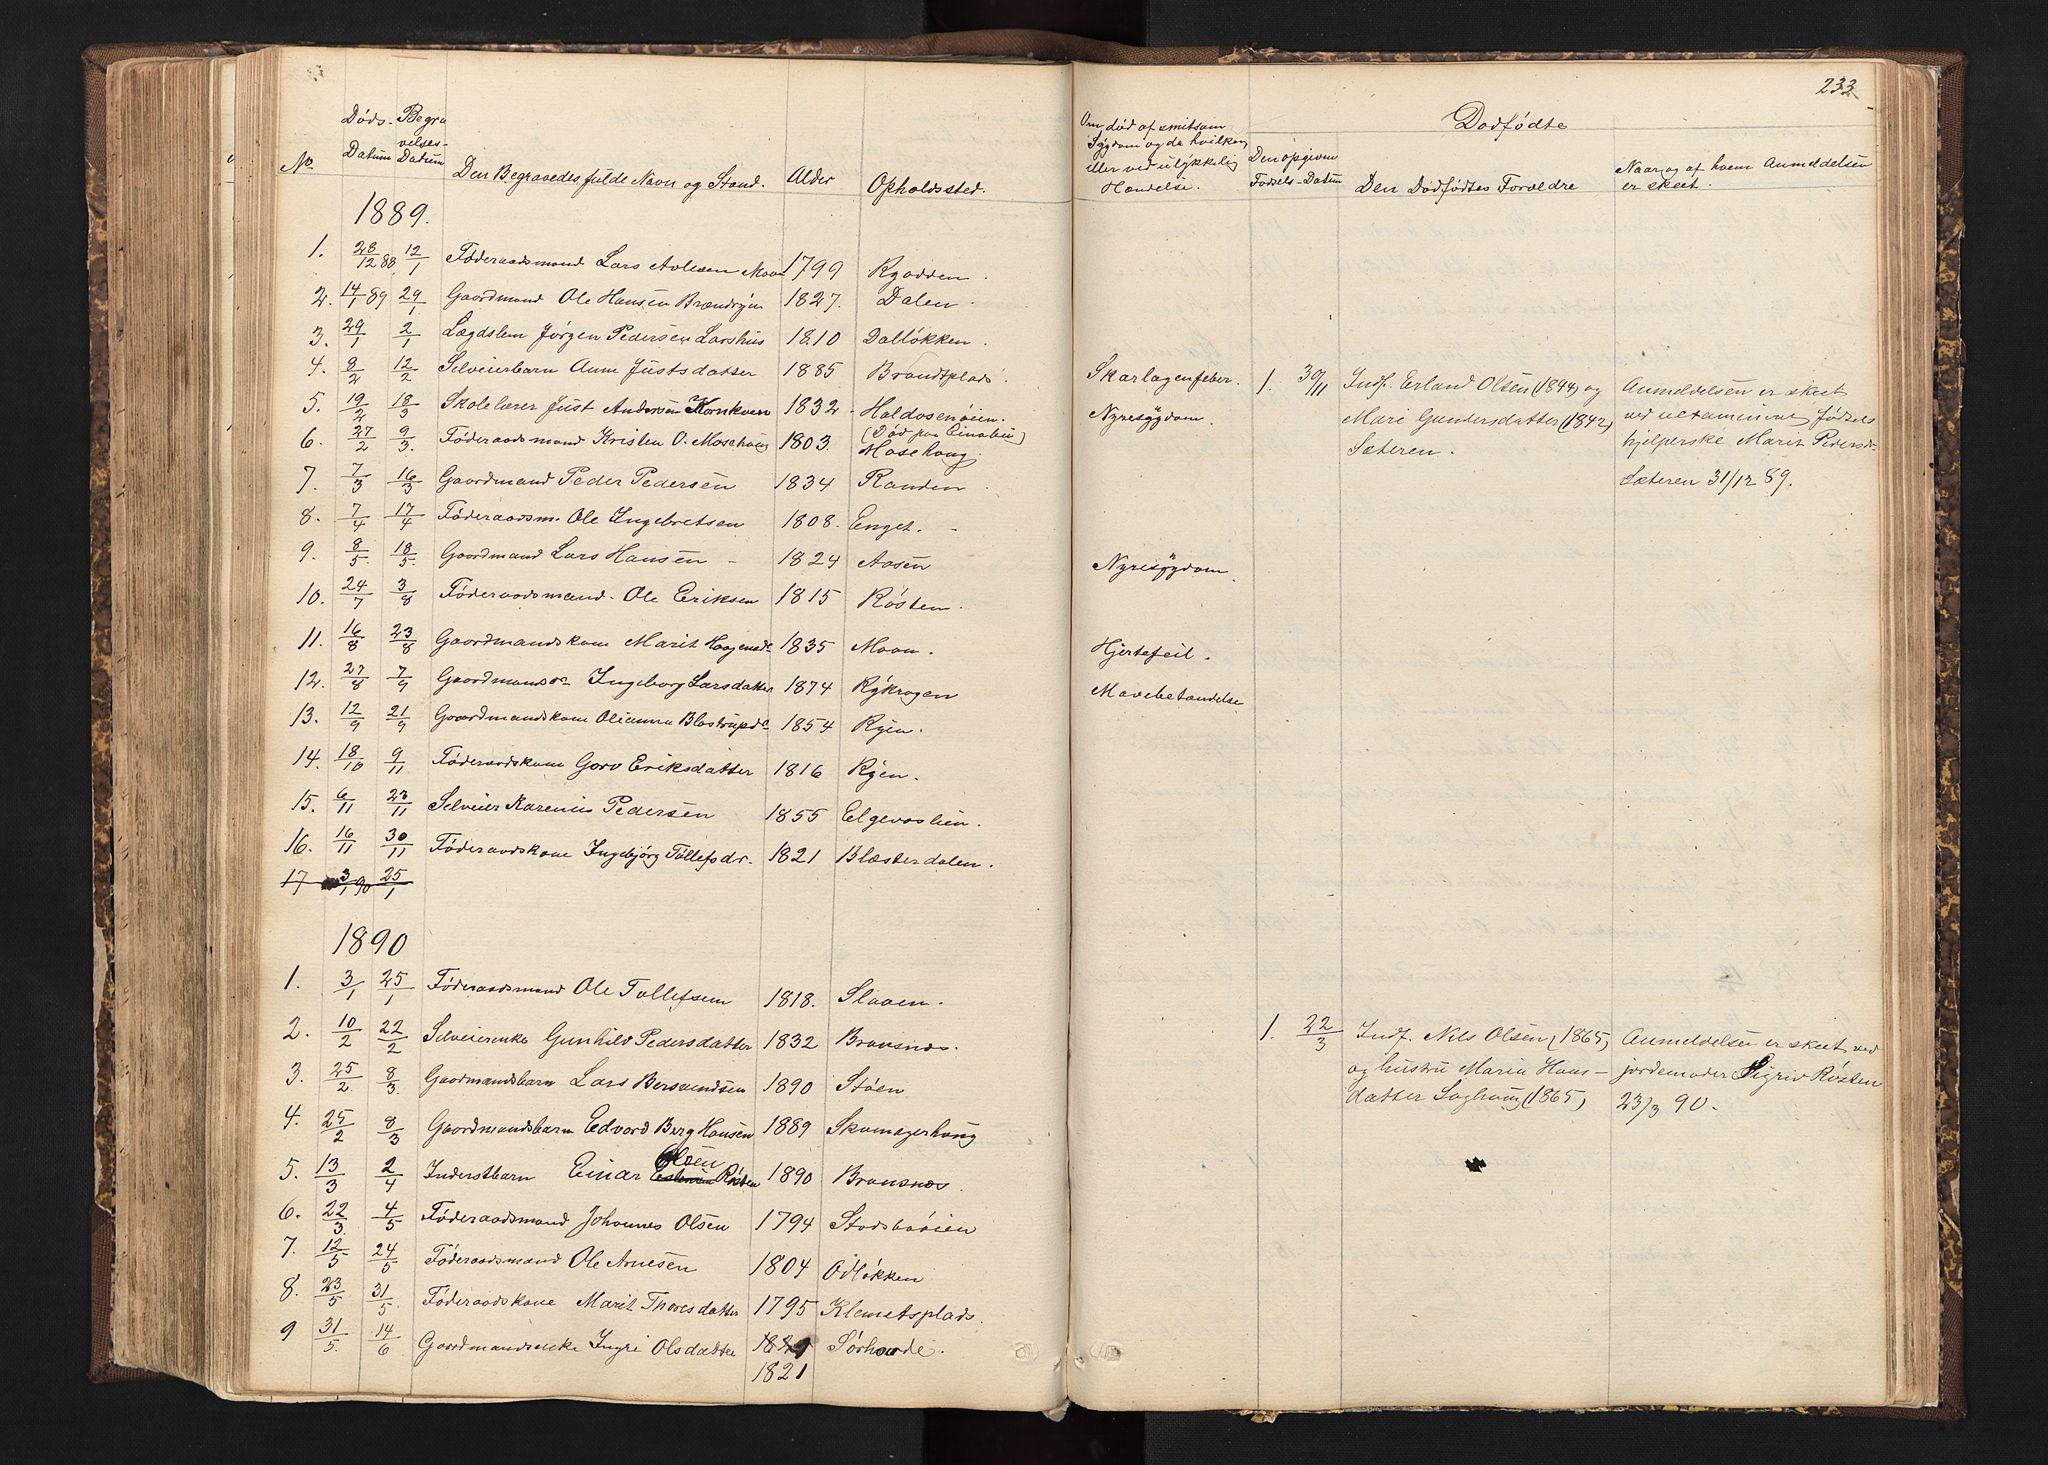 233
No
Døds- Datum
Begravelses- Datum
Den Begravedes fulde Navn og Stand.
Alder
Opholdssted.
Om død af smitsom Sygdom og da hvilken, eller ved ulykkelig Hændelse.
Dødfødte
Den opgivne Fødsels-Datum
Den Dødfødtes Forældre
Naar og af hvem Anmeldelsen er skeet.
1889.
1. 28/12 88 12/1 Føderaadsmand Lars Moen 1799 Ryodden.
2. 14/1 89 29/1 Gaardmand Ole Hansen 1827. Dalen.
3. 29/1 2/1 Lægdslem Jørgen Pedersen Larshus 1810 Dalløkken.
4. 8/2 12/2 Selveierbarn Anne Justsdatter 1885 Brandtplads. Skarlagenfeber.
5. 19/2 18/3 Skolelærer Just Andersen Kornkven 1832 Haldosenøien. Nyresygdom.
6. 27/2 9/3 Føderaadsmand Kristen O. Mosehaug 1803. (Død paa Einabu) Mosehaug.
7. 7/3 16/3 Gaardmand Peder Pedersen 1834 Randen
8. 7/4 17/4 Føderaadsm. Ole Ingebretsen 1808. Enget.
9. 8/5 18/5. Gaardmand Lars Hansen 1824 Aasen Nyresygdom.
10. 24/7 3/8 Føderaadsmand. Ole Eriksen 1815 Røsten.
11. 16/8 23/8 Gaardmandskone Marit Haagensdr 1835 Moen. Hjertefeil.
12. 27/8 7/9 Ingeborg Larsdatter 1874 Rykrogen Mavebetændelse
13. 12/9 21/9 Gaardmandskone Olianna 1854 Ryen.
14. 18/10 9/11 Føderaadskone Goro Eriksdatter 1816 Ryen.
15. 6/11 23/11 Selveier Karenius Pedersen 1855 Elgevaslien.
16. 16/11 30/11 Føderaadskone Ingebjørg Tollefsdr. 1821 Blæsterdalen.
17 3/1 90 25/1
1. 30/11 Indf. Erland Olsen (1844) og
Mari Gundersdatter (1842)
Sæteren.
Anmeldelsen er skeet
ved uexamineret fødsels
hjelperske Marit Pedersdr
Sæteren 31/12 89.
1890
1. 3/1 25/1 Føderaadsmand Ole Tollefsen 1818. Slaaen.
2. 10/2 22/2 Selveierenke Gunhild Pedersdatter 1832 Bransnæs.
3. 25/2. 8/3. Gaardmandsbarn Lars Bersvendsen 1890 Støen
4. 25/2 8/3 Gaardmandsbarn Edvard Berg Hansen 1889 Skomagerhaug
5. 13/3 2/4 Inderstbarn Einar Olsen Røsten 1890 Bransnæs.
6. 22/3. 4/5 Føderaadsmand Johannes Olsen 1794 Stadsbuøien
7. 12/5 24/5 Føderaadsmand Ole Arnesen 1804 Odløkken
8. 23/5 31/5. Føderaadskone Marit Thoresdatter 1795 Klemetsplads.
9 31/5. 14/6 Gaardmandsenke Ingri Olsdatter Sørhorde.
1821
1. 22/3 Indf. Nils Olsen (1865)
og hustru Maria Hans-
datter Laghaug (1865)
Anmeldelsen er skeet ved
jordemoder Sigrid Røsten
23/3 90.